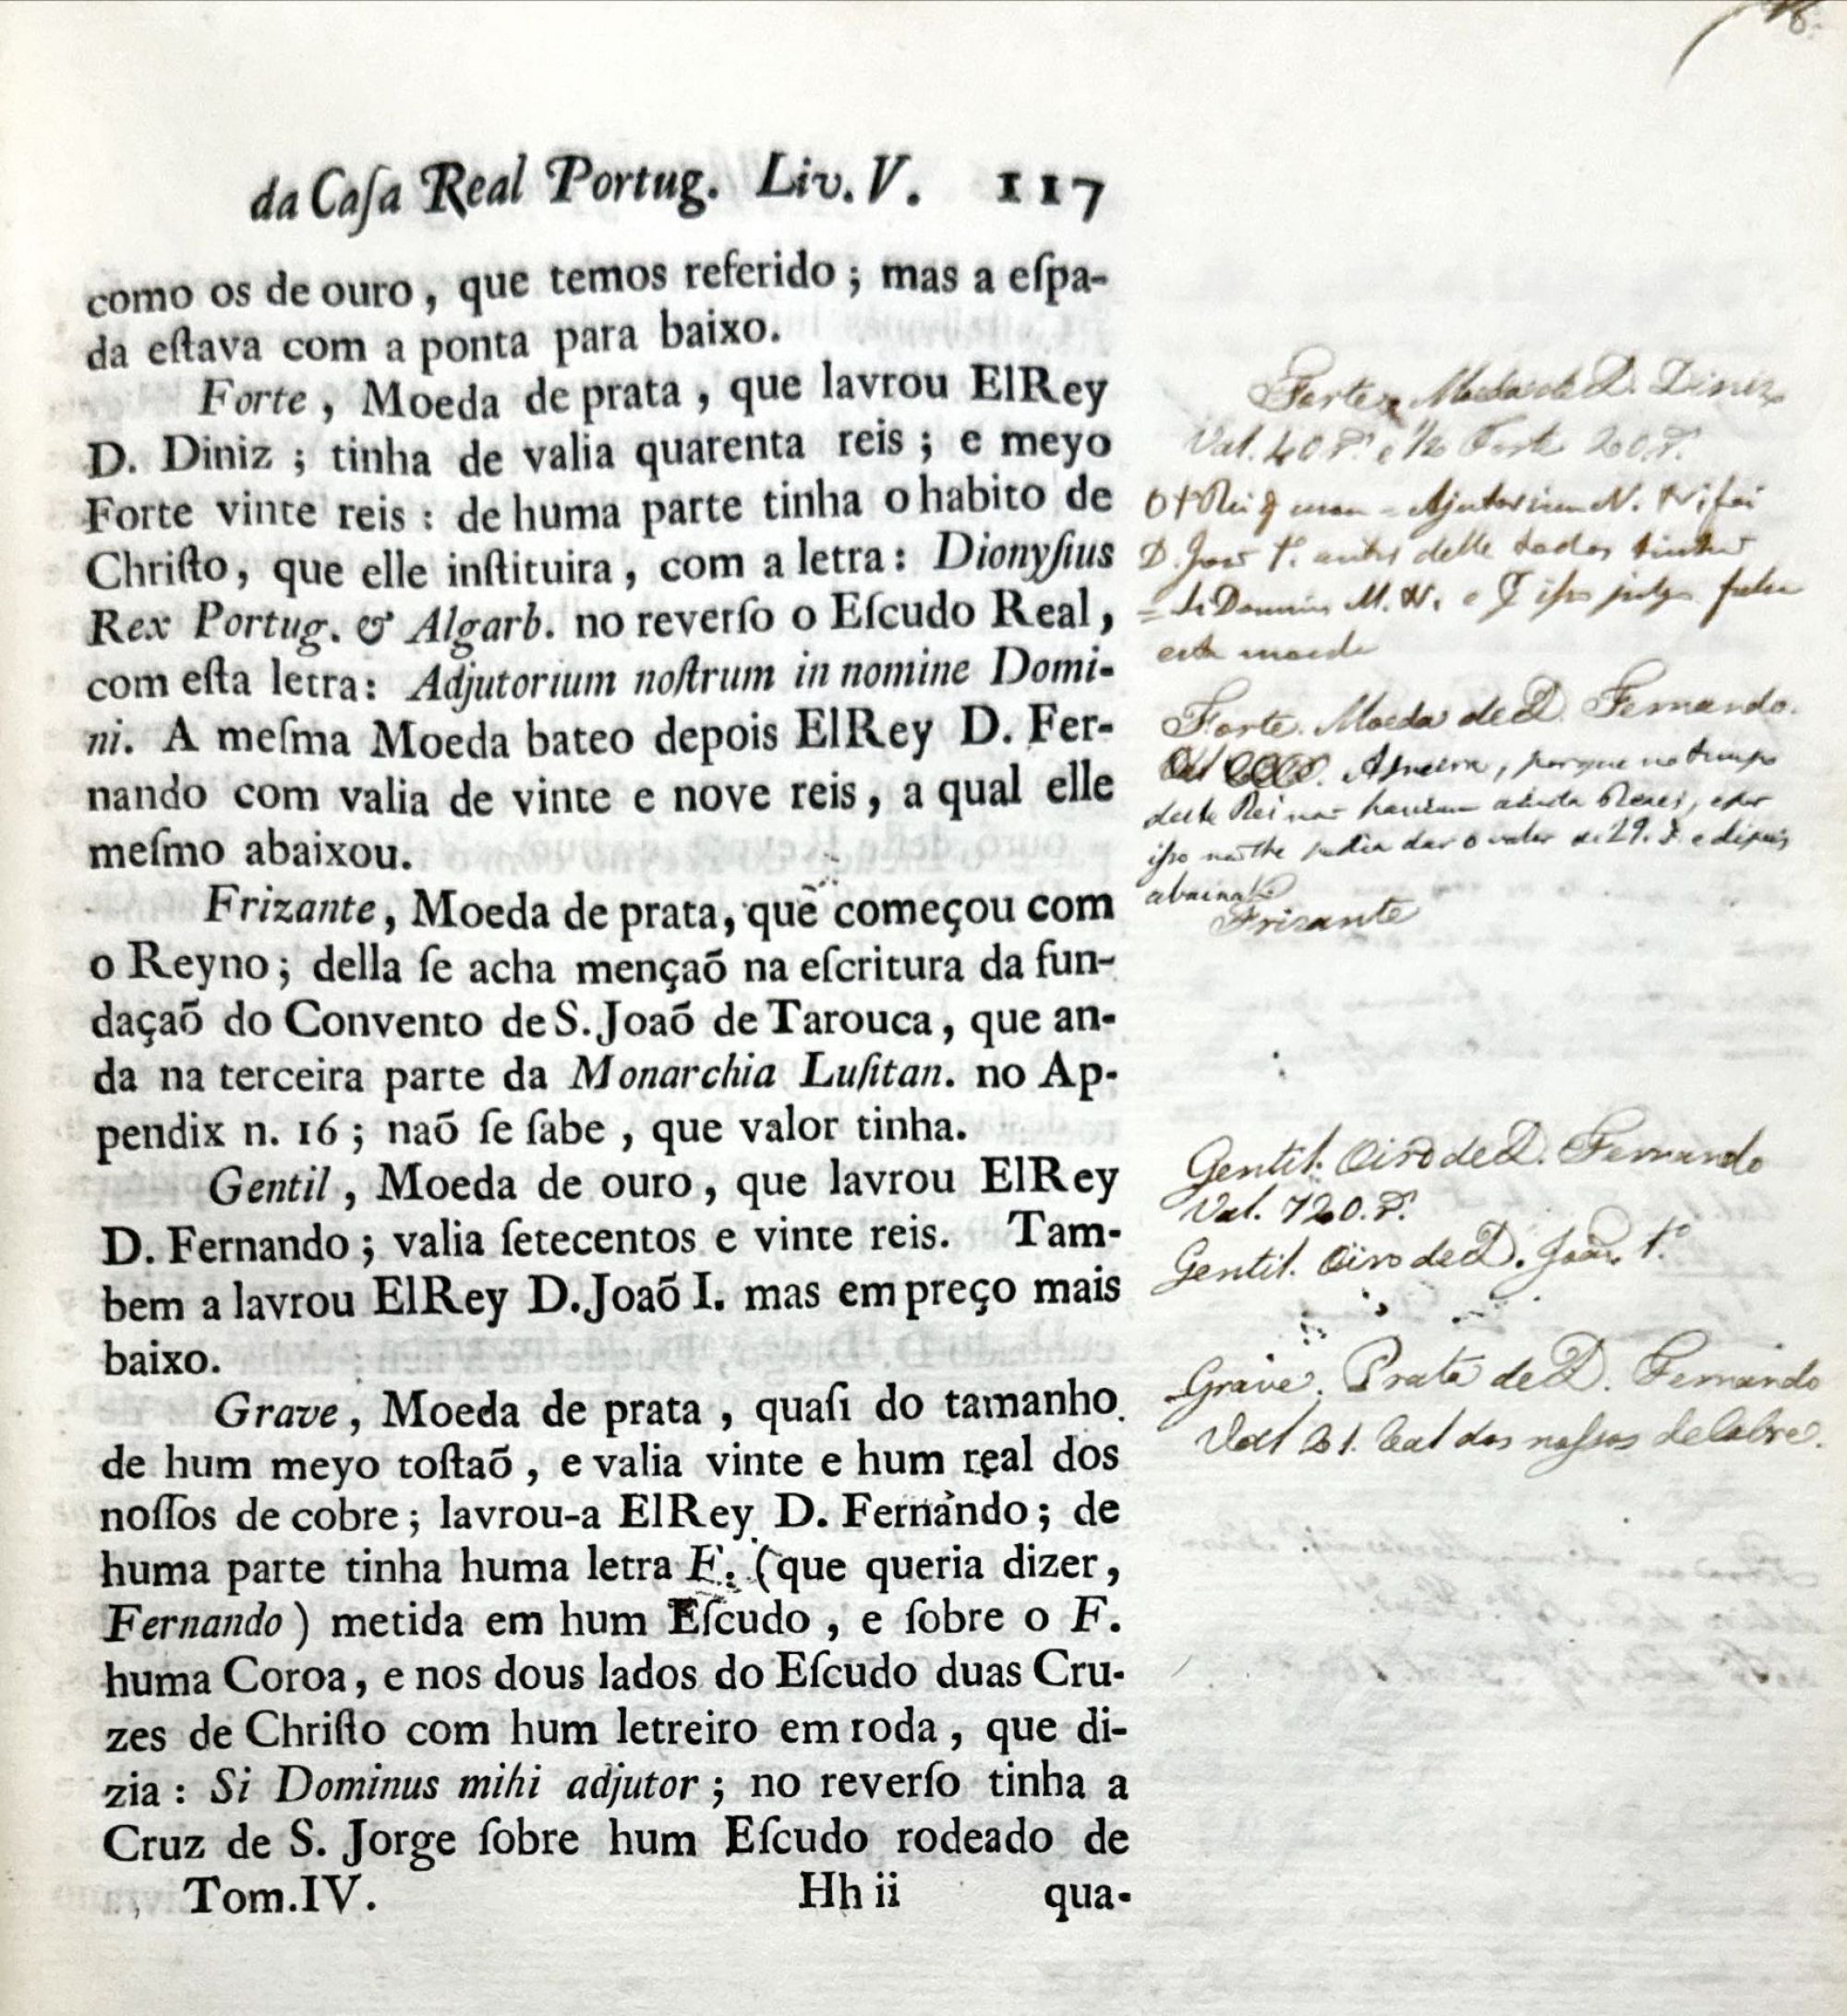 da Caſa Real Portug. Liv. V. 117
como os de ouro, que temos referido; mas a eſpa-
da eſtava com a ponta para baixo.
Forte, Moeda de prata, que lavrou ElRey
D. Diniz; tinha de valia quarenta reis; e meyo
Forte vinte reis: de huma parte tinha o habito de
Chriſto, que elle inſtituira, com a letra: Dionyſius
Rex Portug. & Algarb. no reverſo o Eſcudo Real,
com eſta letra: Adjutorium noſtrum in nomine Domi-
ni. A meſma Moeda bateo depois ElRey D. Fer-
nando com valia de vinte e nove reis, a qual elle
meſmo abaixou.
Frizante, Moeda de prata, que começou com
o Reyno; della ſe acha mençaõ na eſcritura da fun-
daçaõ do Convento de S. Joaõ de Tarouca, que an-
da na terceira parte da Monarchia Luſitan. no Ap-
pendix n. 16; naõ ſe ſabe, que valor tinha.
Gentil, Moeda de ouro, que lavrou ElRey
D. Fernando; valia ſetecentos e vinte reis. Tam-
bem a lavrou ElRey D. Joaõ I. mas em preço mais
baixo.
Grave, Moeda de prata, quaſi do tamanho
de hum meyo toſtaõ, e valia vinte e hum real dos
noſſos de cobre; lavrou-a ElRey D. Fernando; de
huma parte tinha huma letra F. (que queria dizer,
Fernando) metida em hum Eſcudo, e ſobre o F.
huma Coroa, e nos dous lados do Eſcudo duas Cru-
zes de Chriſto com hum letreiro em roda, que di-
zia: Si Dominus mihi adjutor; no reverſo tinha a
Cruz de S. Jorge ſobre hum Eſcudo rodeado de
Tom.IV. Hh ii qua-
Forte Moeda de D. Diniz
Val. 40 e 1/2 Forte 20
Rei Adjutorium N. foi
D. João 1º. antes delle todos
Dominus M. e iſso julgo falsa
esta moeda
Forte. Moeda de D. Fernando.
Asneira, porque no tempo
deste Rei não haviam ainda Reaes, e por
iſso não lhe podia dar o valor de 29. e depois
Frizante
Gentil. Oiro de D. Fernando
Val. 720.
Gentil. Oiro de D. João 1.º
Grave. Prata de D. Fernando
Val 21. Real dos noſsos de Cobre.